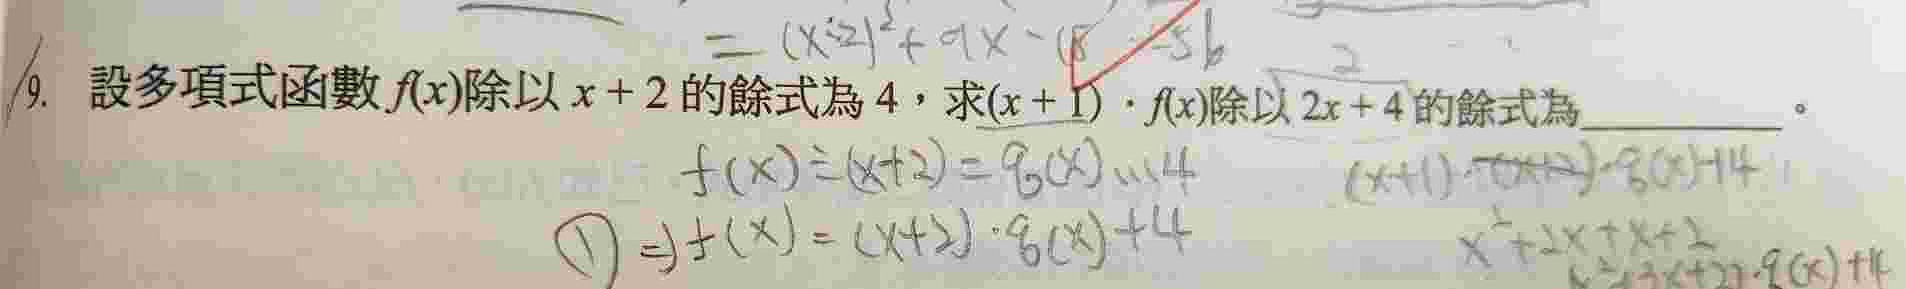 = (x-2)² + 9x - 18 - 5b
9. 設多項式函數 f(x)除以 x + 2 的餘式為 4，求(x + 1)．f(x)除以 2x + 4 的餘式為________。
2
f(x) ÷ (x+2) = q(x) ... 4
(x+1)·(x+2)·q(x)+4
① ⇒ f(x) = (x+2)·q(x)+4
x²+2x+x+2
x²+3x+2)·q(x)+4